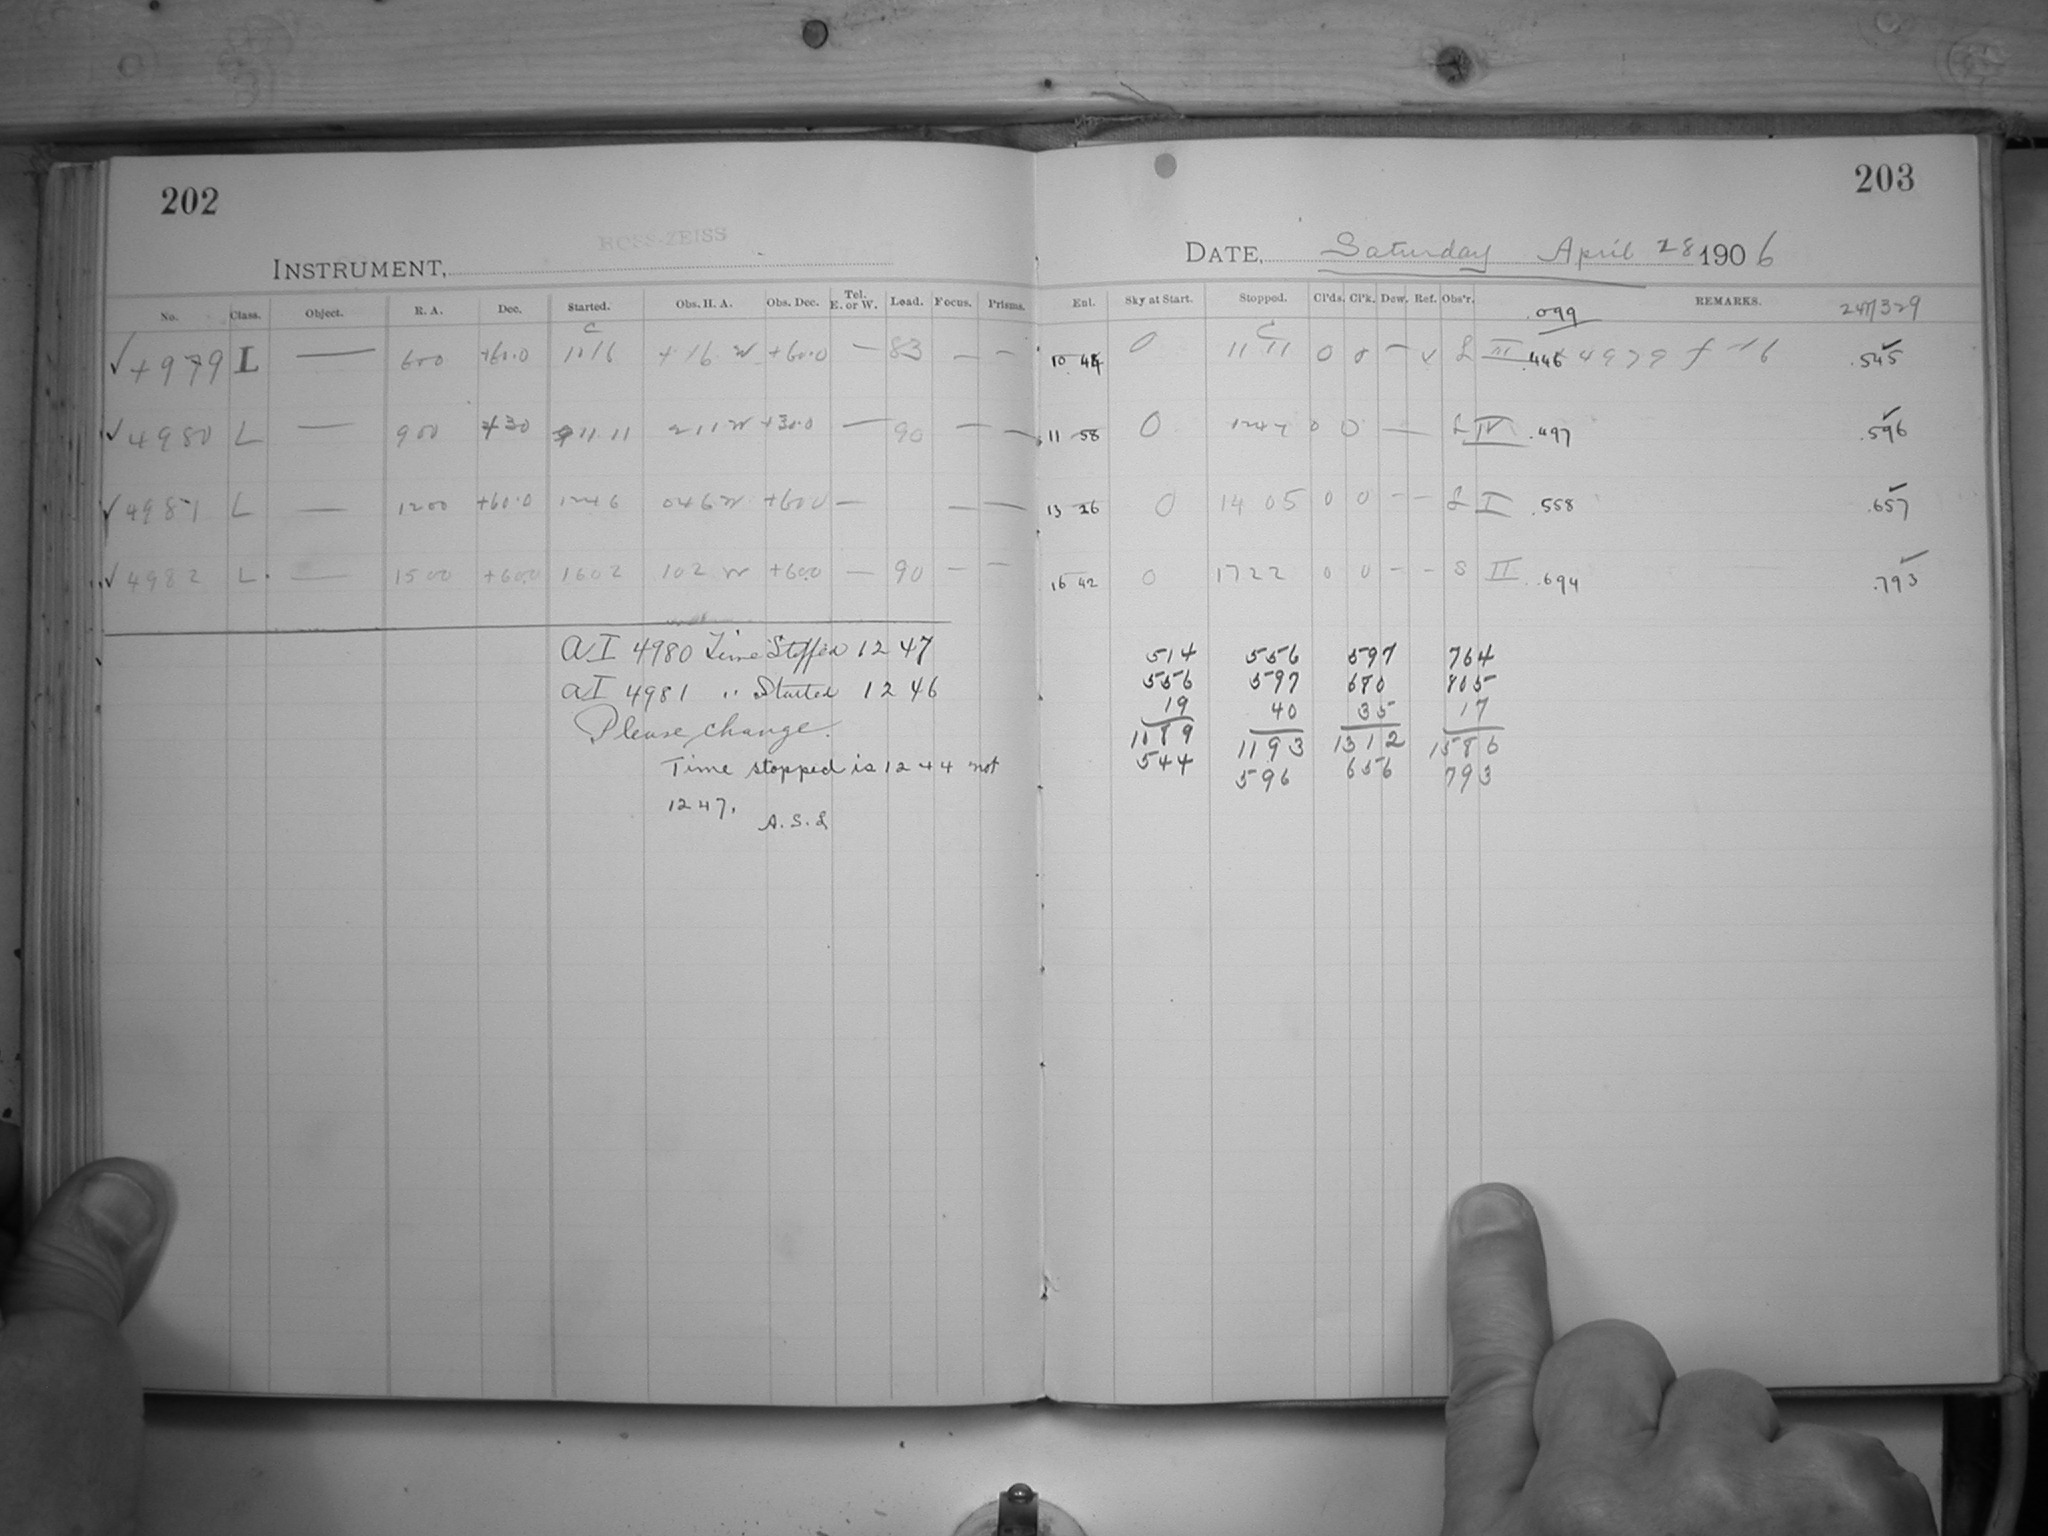 202
ROSS-ZEISS
INSTRUMENT,
No. Class. Object. R. A. Dec. Started. Obs. H. A. Obs. Dec. Tel. E. or W. Load. Focus. Prisms.
✓ 4979 L — 600 +60.0 1016 +16 W +60.0 — 83 — —
✓ 4980 L — 900 +30 11 11 211 W +30.0 — 90 — —
✓ 4981 L — 1200 +60.0 1246 046 W +60.0 — — —
✓ 4982 L. — 1500 +60.0 1602 102 W +60.0 — 90 — —
AI 4980 Time Stopped 12 47
AI 4981 " Started 12 46
Please change.
Time stopped is 12 44 not
12 47.
A. S. L
203
DATE, Saturday April 28 1906
Exl. Sky at Start. Stopped. Cl'ds. Cl'k. Dew. Ref. Obs'r. REMARKS.
.099 241/329
10 44 0 11 11 0 0 — v L III .446 4979 f — 16 .545 ✓
11 58 0 1244 0 0 — L IV .497 .596 ✓
13 26 0 14 05 0 0 — — L I .558 .657 ✓
16 42 0 1722 0 0 — — S II .694 .793 ✓
514 556 597 764
556 597 680 805
19 40 35 17
1089 1193 1312 1586
544 596 656 793